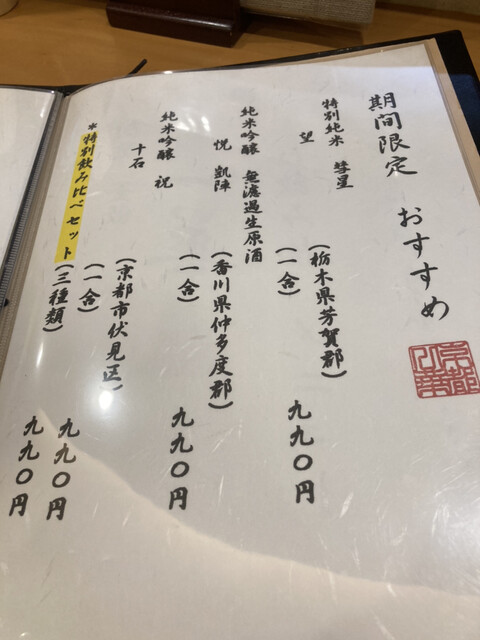 期間限定 おすすめ
特別純米 彗星
望
(栃木県芳賀郡)
(一合)
九九〇円
純米吟醸 無濾過生原酒
悦 凱陣
(香川県仲多度郡)
(一合)
九九〇円
純米吟醸 祝
十石
(京都市伏見区)
(一合)
九九〇円
*特別飲み比べセット
(三種類)
九九〇円